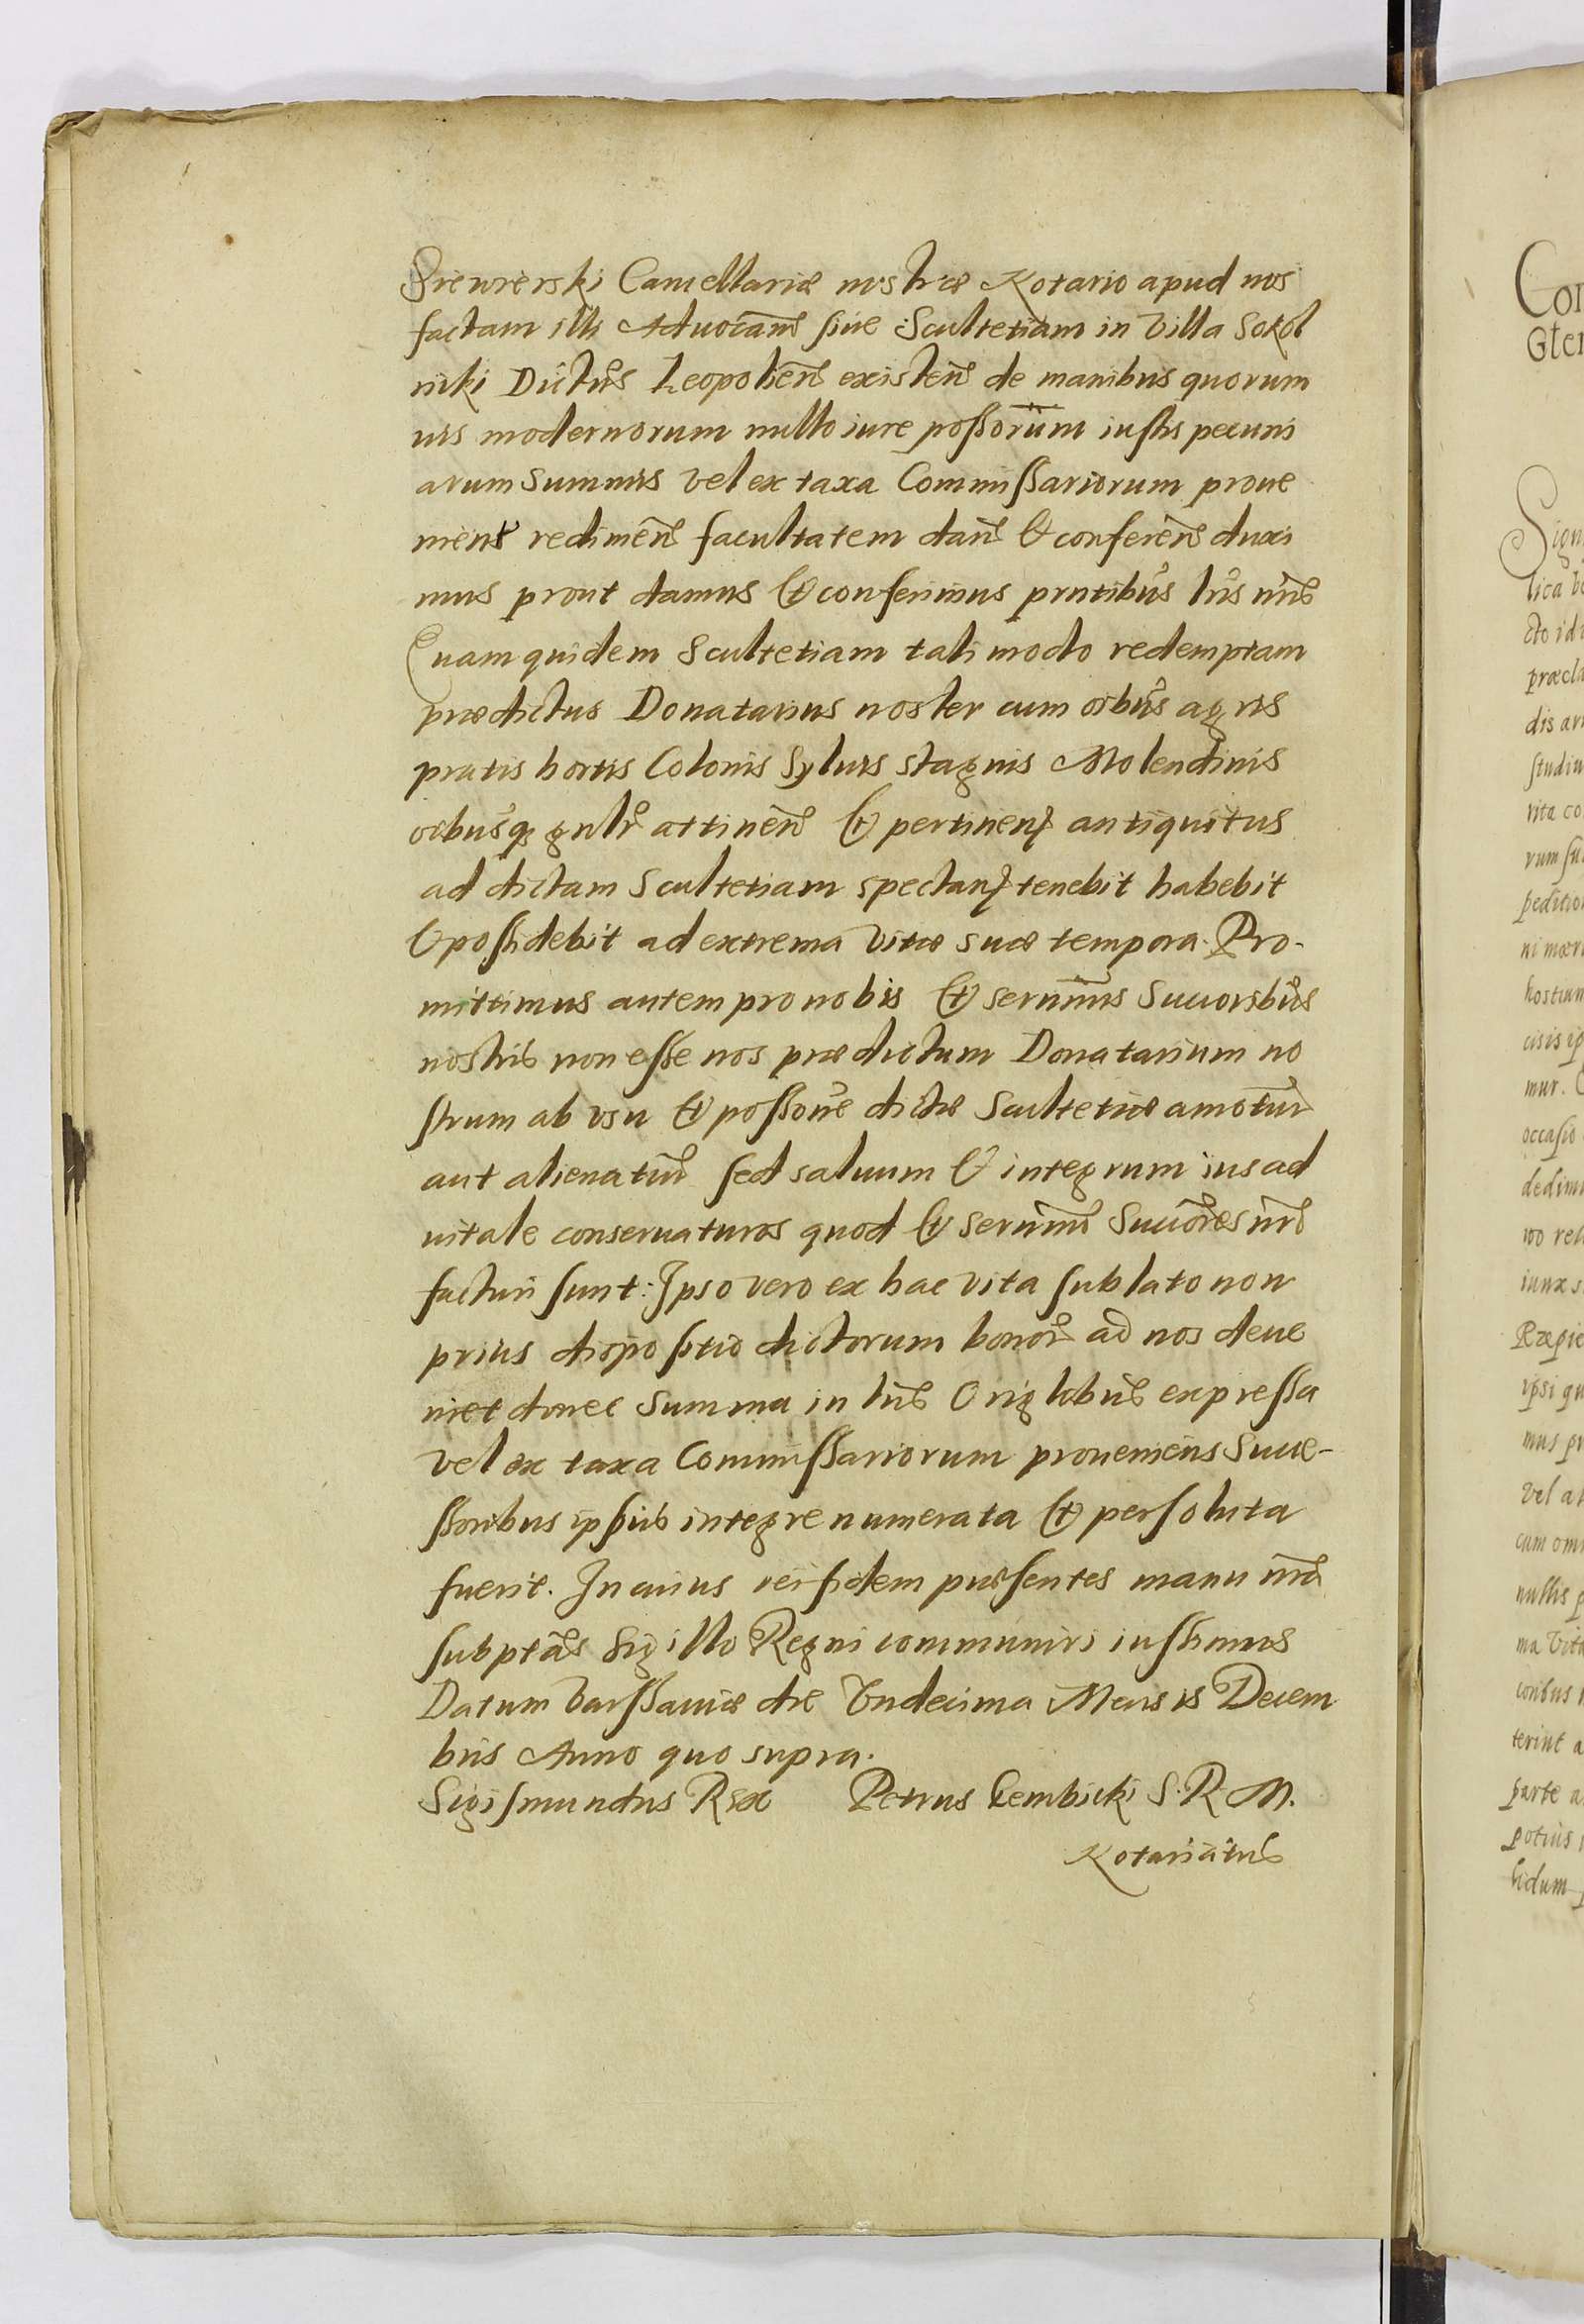 Siewierski Cancellariæ nostræ Notario apud nos
factam illi Aduocañ siue Scultetiam in Villa Sokol
niki Dictus Leopolień existeñ de manibus quorum
uis modernorum nullo iure possorum iustis pecuni
arum summis vel ex taxa Commissariorum proue
nieñ redimeñ facultatem dañ & confereñ duxi
mus prout damus & conferimus pntibus lris nris
Quam quidem Scultetiam tali modo redemptam
prædictus Donatarius noster cum oibus agris
pratis hortis Colonis Syluis stagnis Molendinis
oibusq gnlr attineñ & pertineñ antiquitus
ad dictam Scultetiam spectañ tenebit habebit
& possidebit ad extrema vitæ suæ tempora. Pro-
mittimus autem pro nobis & sernimis Succoribus
nostris non esse nos prædictum Donatarium no
strum ab vsu & possone dictæ Scultetiæ amotur
aut alienatur sed saluum & integrum ius ad
uitale conseruaturos quod & sernimi Succores nri
facturi sunt: Ipso vero ex hac vita sublato non
prius dispositio dictorum bonor ad nos deue
niet donec summa in lris Originlibus expressa
vel ex taxa Commissariorum proueniens Succe-
ssoribus ipsius integre numerata & persoluta
fuerit. In cuius rei fidem præsentes manu nra
subptas Sigillo Regni communiri iussimus
Datum Varssauiæ die Vndecima Mensis Decem
bris Anno quo supra.
Sigismundus Rex Petrus Gembicki S. R. M.
Notariatus
Con
Gter
Sign
lica
cto id
præcla
dis ar
studiu
vita co
rum su
peditio
ni mœr
hostium
cisis ip
mur.
occasio
dedimu
uo rel
iuxæ s
Rægie
ipsi qu
mus pr
vel al
cum omn
nullis p
ma vitæ
coribus
terint a
parte a
potius
lidum p